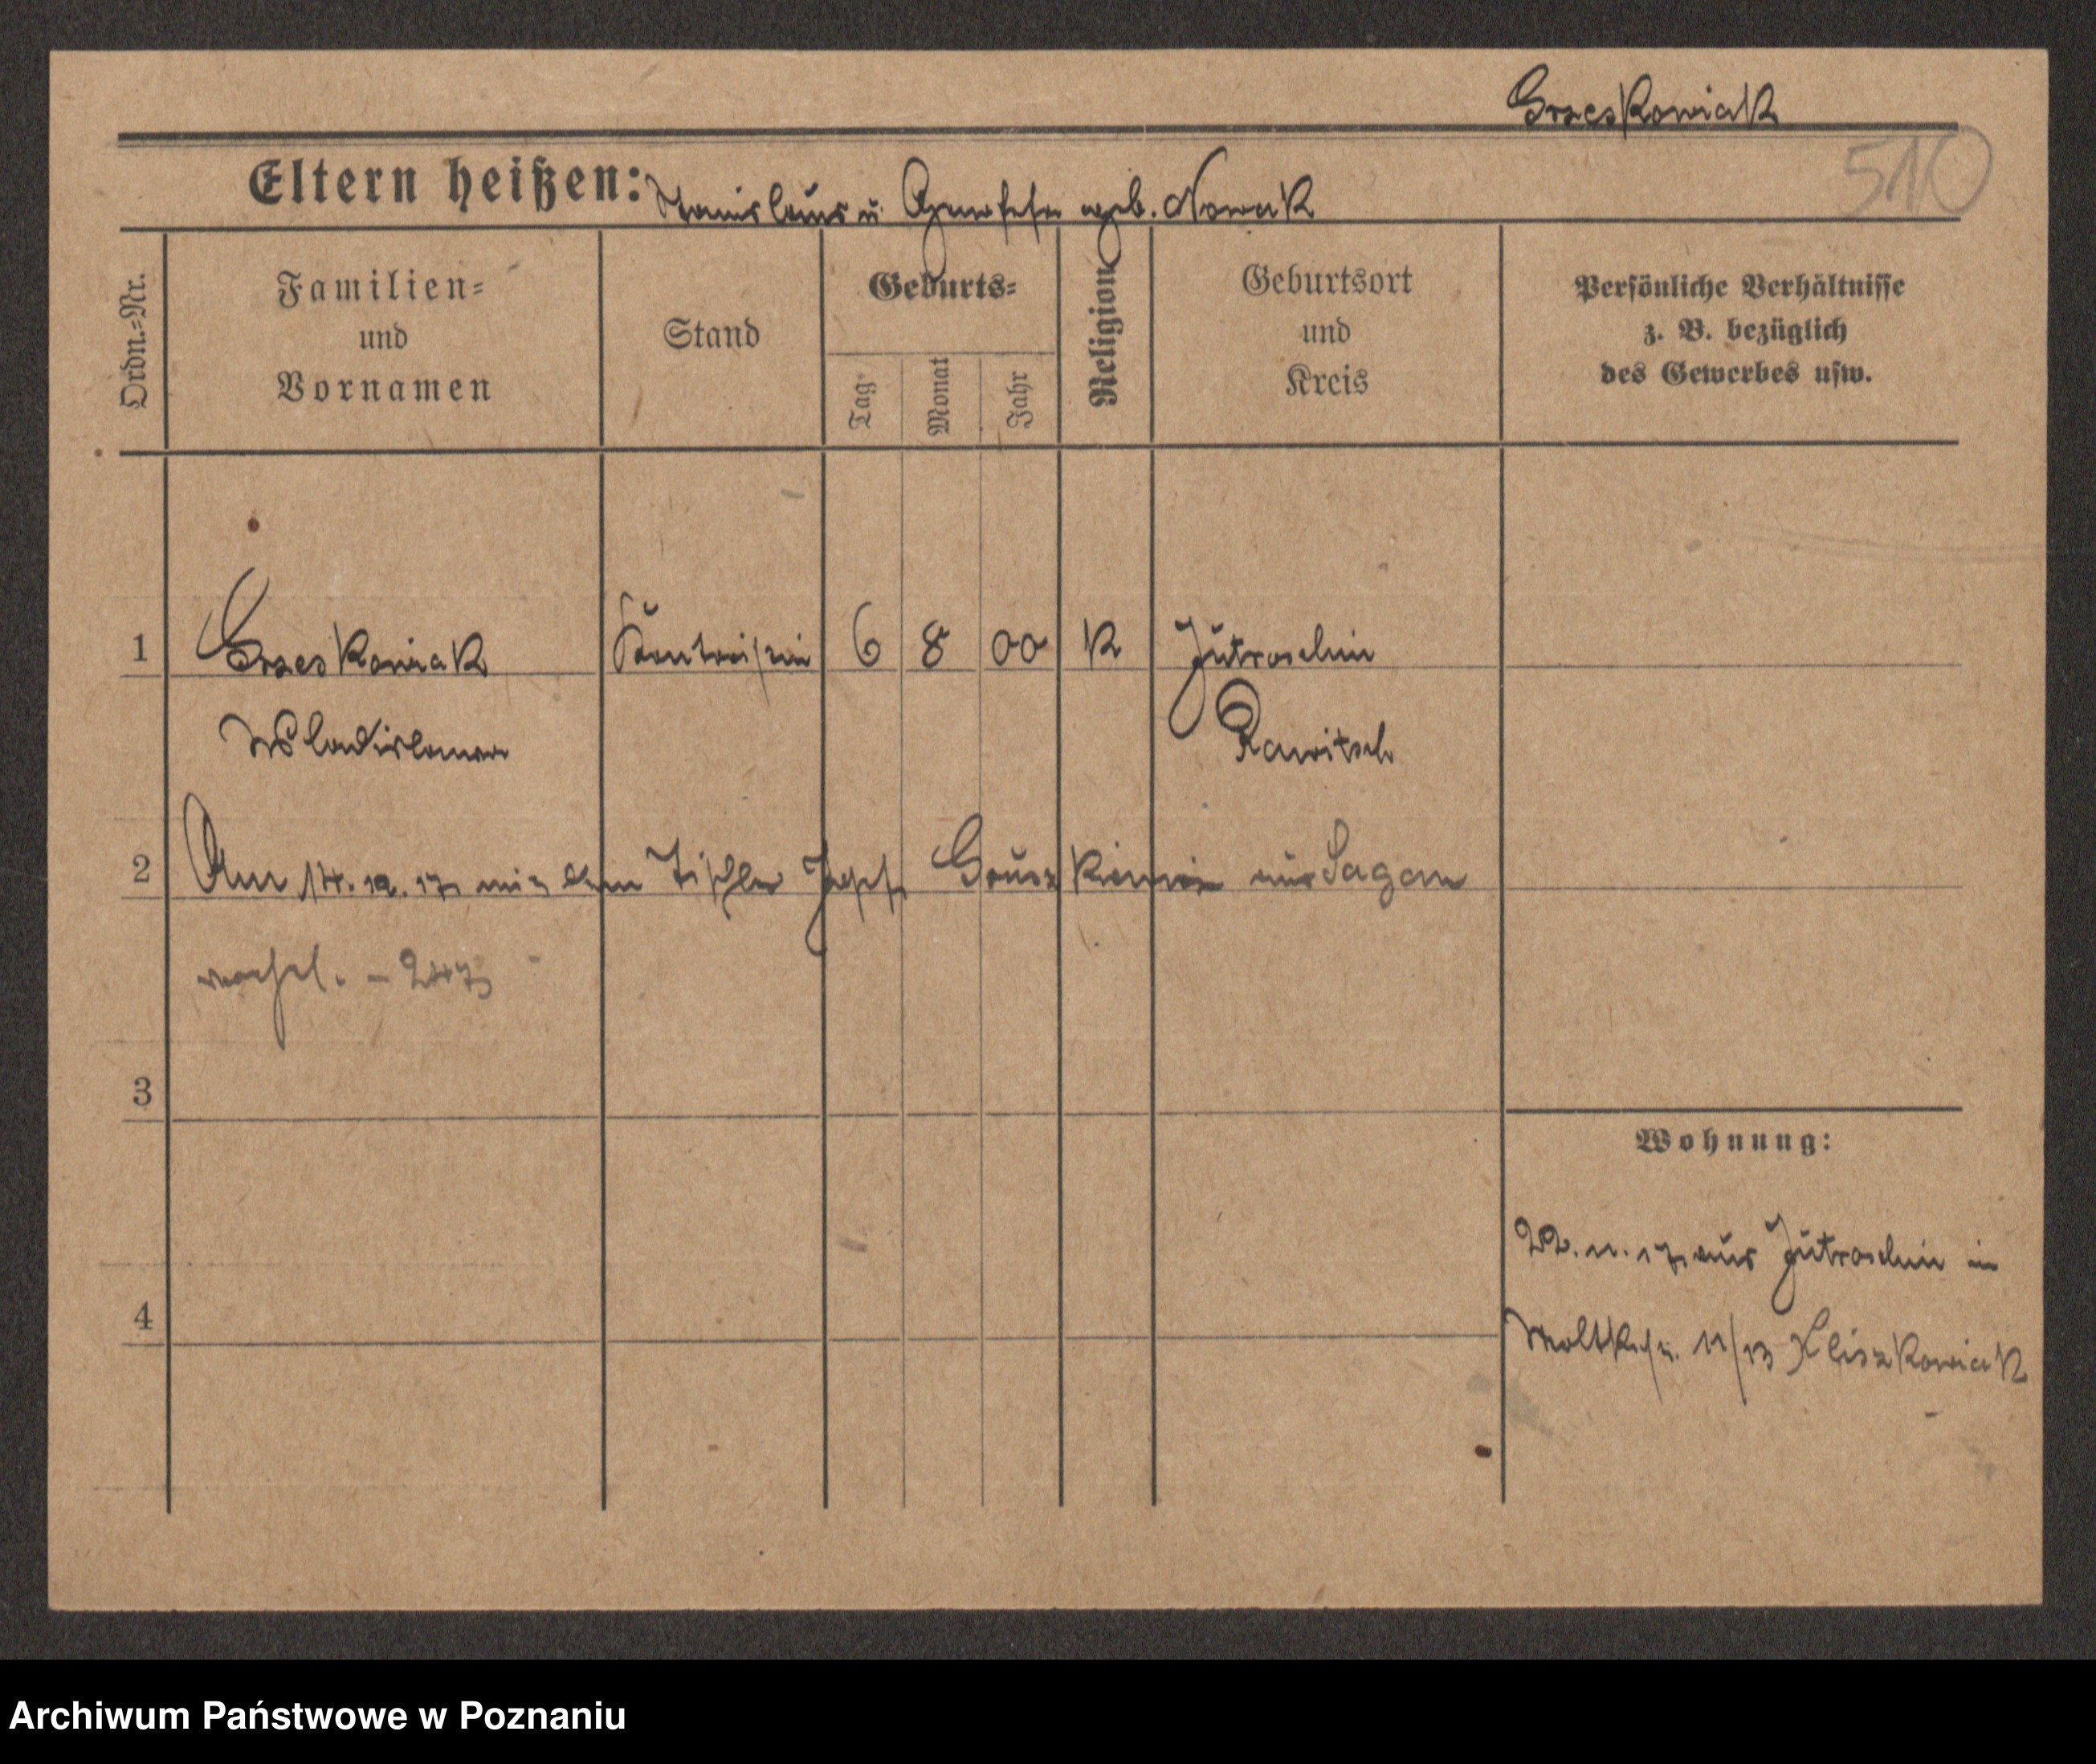 Grzeskowiak
510
Eltern heißen: Stanislaus u. geb. Nowak
Ordn.=Nr.
Familien=
und
Vornamen
Stand
Geburts=
Tag
Monat
Jahr
Religion
Geburtsort
und
Kreis
Persönliche Verhältnisse
z. B. bezüglich
des Gewerbes usw.
1 Grzeskowiak 6 8 00 K Jutroschin
Wladislawa Rawitsch
2 Am 14. 12. 17 mit dem Tischler Josef aus Sagan
3
Wohnung:
22. 11. 17 aus Jutroschin in
4
Moltkestr. 11/13 Kliszkowiak
Archiwum Państwowe w Poznaniu